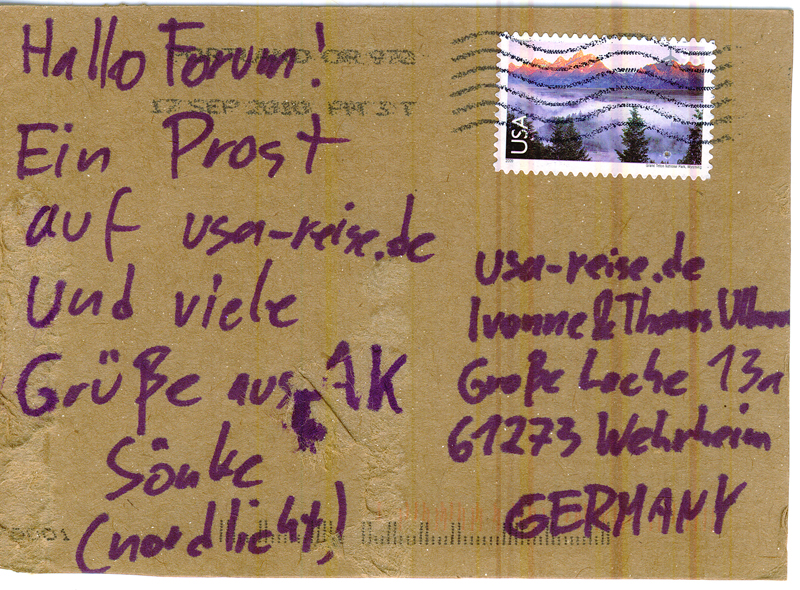 Hallo Forum!
Ein Prost
auf usa-reise.de
und viele
Grüße aus AK
Sönke
(nordlicht)
PORTLAND OR 972
17 SEP 2010 PM 3 T
USA
usa-reise.de
Ivonne & Thomas
Große Lache 13a
61273 Wehrheim
GERMANY